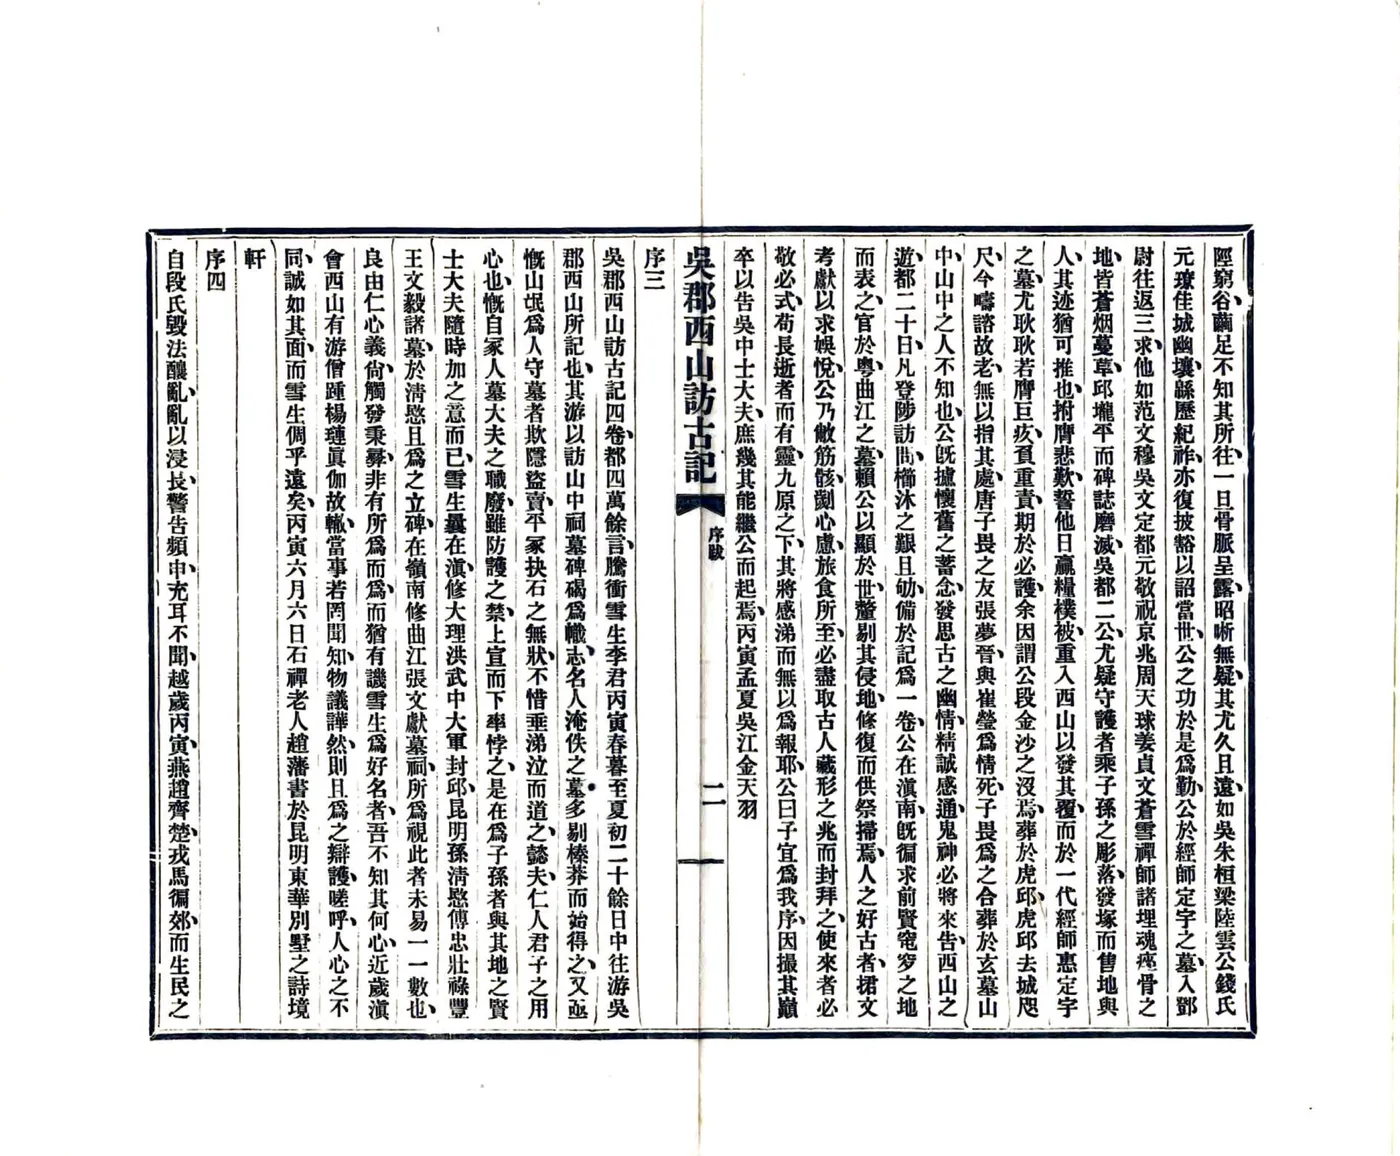 陘窮谷、繭足不知其所往、一旦骨脈呈露、昭晰無疑、其尤久且遠、如吳朱桓梁陸雲公錢氏
元璙佳城幽壤、緜歷紀祚、亦復披豁以詔當世、公之功於是爲勤、公於經師定宇之墓、入鄧
尉往返三求、他如范文穆吳文定都元敬祝京兆周天球姜貞文蒼雪禪師諸埋魂瘞骨之
地、皆蒼烟蔓草、邱壠平而碑誌磨滅、吳都二公、尤疑守護者乘子孫之彫落、發塚而售地與
人、其迹猶可推也、拊膺悲歎、誓他日贏糧樸被、重入西山以發其覆、而於一代經師惠定宇
之墓、尤耿耿若膺巨疚、負重責、期於必護、余因謂公段金沙之沒焉、葬於虎邱、虎邱去城咫
尺、今疇諮故老、無以指其處、唐子畏之友張夢晉、與崔瑩爲情死、子畏爲之合葬於玄墓山
中、山中之人不知也、公旣攄懷舊之蓄念、發思古之幽情、精誠感通、鬼神必將來告、西山之
遊、都二十日、凡登陟訪問、櫛沐之艱且劬、備於記爲一卷、公在滇南、旣徧求前賢窀穸之地
而表之、官於粤、曲江之墓、賴公以顯於世、釐剔其侵地、修復而供祭掃焉、人之好古者、捃文
考獻以求娛悅、公乃敝筋骸、劌心慮、旅食所至、必盡取古人藏形之兆而封拜之、使來者必
敬必式、苟長逝者而有靈、九原之下、其將感涕而無以爲報耶、公曰子宜爲我序、因撮其巔
卒以告吳中士大夫、庶幾其能繼公而起焉、丙寅孟夏吳江金天羽
吳郡西山訪古記 序跋 二
序三
吳郡西山訪古記四卷、都四萬餘言、騰衝雪生李君丙寅春暮至夏初二十餘日中往游吳
郡西山所記也、其游以訪山中祠墓碑碣爲幟志、名人淹佚之墓、多剔榛莽而始得之、又亟
慨山氓爲人守墓者欺隱盜賣、平冢抉石之無狀、不惜垂涕泣而道之、懿夫仁人君子之用
心也、慨自冢人墓大夫之職廢、雖防護之禁、上宣而下率悖之、是在爲子孫者與其地之賢
士大夫隨時加之意而已、雪生曩在滇、修大理洪武中大軍封邱、昆明孫淸愍傅忠壯祿豐
王文毅諸墓、於淸愍且爲之立碑、在嶺南修曲江張文獻墓祠、所爲視此者未易一一數也、
良由仁心義尙、觸發秉彝、非有所爲而爲、而猶有譏雪生爲好名者、吾不知其何心、近歲滇
會西山有游僧踵楊璉眞伽故轍、當事若罔聞知、物議譁然、則且爲之辯護、嗟呼、人心之不
同、誠如其面、而雪生倜乎遠矣、丙寅六月六日石禪老人趙藩書於昆明東華別墅之詩境
軒
序四
自段氏毀法釀亂、亂以浸長、警告頻申、充耳不聞、越歲丙寅、燕趙齊楚、戎馬徧郊、而生民之